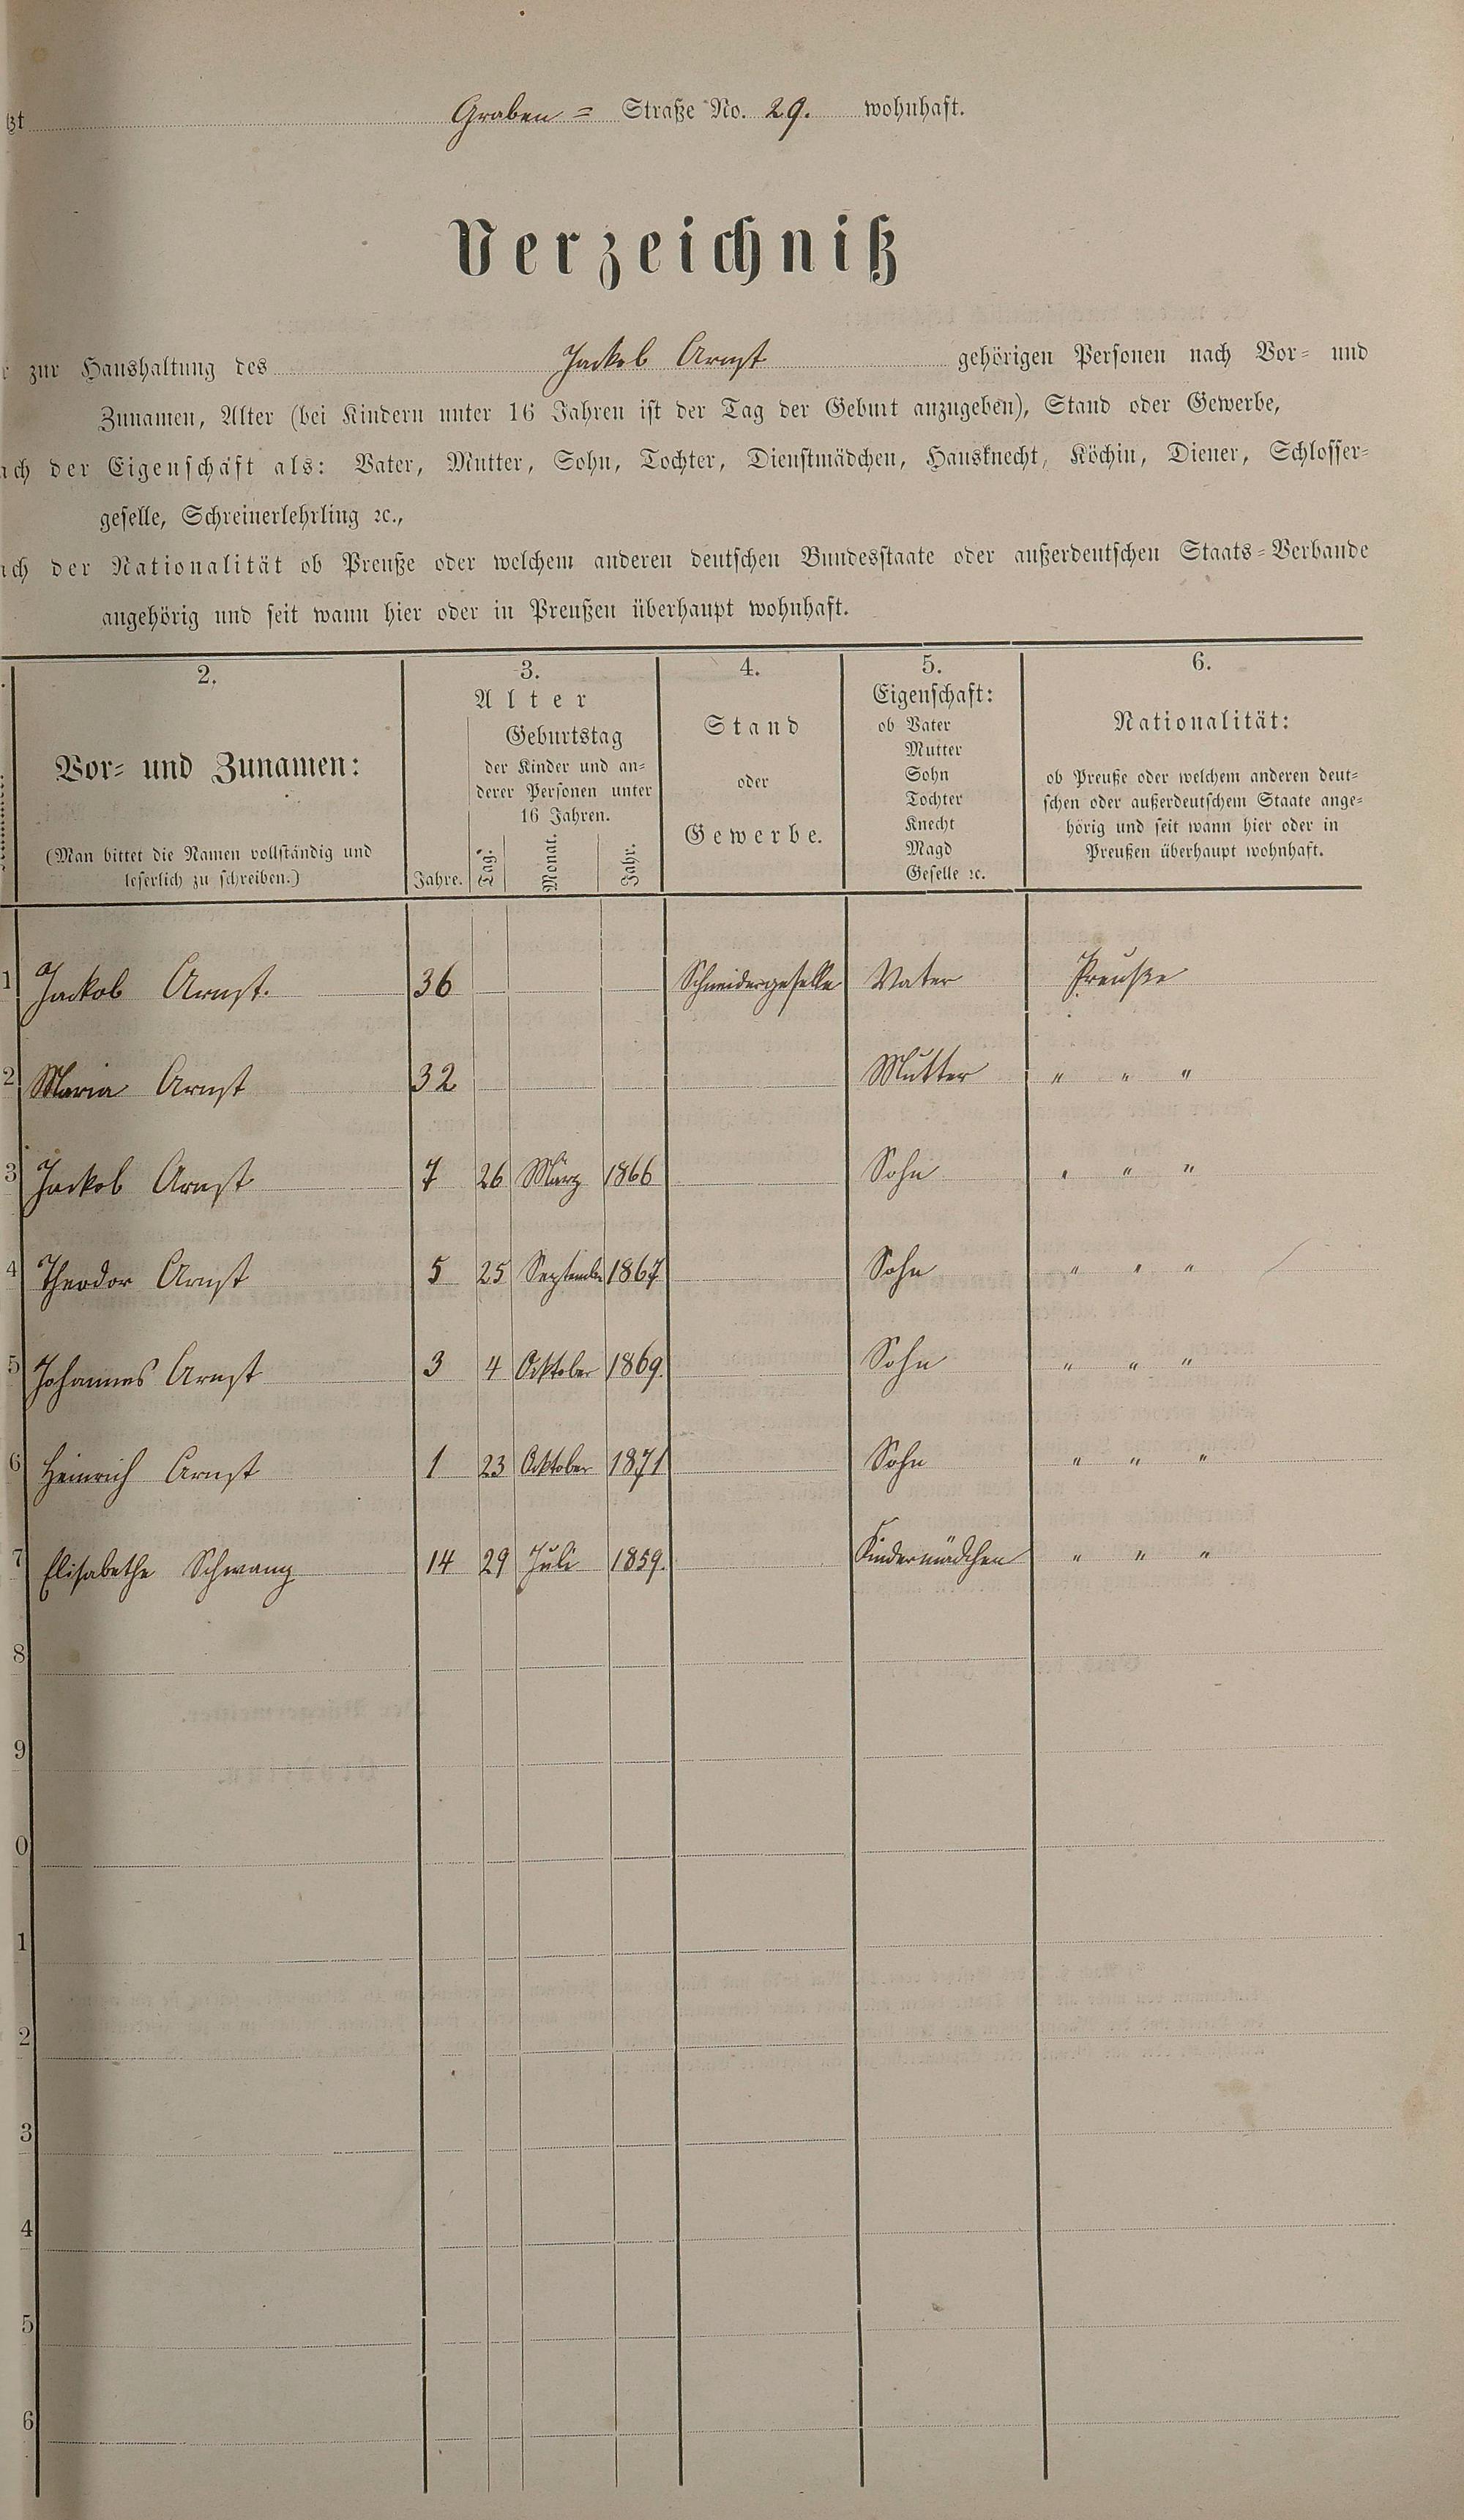 zt Graben = Straße No. 29. wohnhaft.
Verzeichniß
zur Haushaltung des Jackob Arnst gehörigen Personen nach Vor- und
Zunamen, Alter (bei Kindern unter 16 Jahren ist der Tag der Geburt anzugeben), Stand oder Gewerbe,
ach der Eigenschaft als: Vater, Mutter, Sohn, Tochter, Dienstmädchen, Hausknecht, Köchin, Diener, Schlosser-
geselle, Schreinerlehrling ꝛc.,
ach der Nationalität ob Preuße oder welchem anderen deutschen Bundesstaate oder außerdeutschen Staats-Verbande
angehörig und seit wann hier oder in Preußen überhaupt wohnhaft.
2.
Vor- und Zunamen:
(Man bittet die Namen vollständig und
leserlich zu schreiben.)
3.
Alter
Geburtstag
der Kinder und an-
derer Personen unter
16 Jahren.
Jahre. Tag. Monat. Jahr.
4.
Stand
oder
Gewerbe.
5.
Eigenschaft:
ob Vater
Mutter
Sohn
Tochter
Knecht
Magd
Geselle ꝛc.
6.
Nationalität:
ob Preuße oder welchem anderen deut-
schen oder außerdeutschem Staate ange-
hörig und seit wann hier oder in
Preußen überhaupt wohnhaft.
1 Jackob Arnst. 36 Schneidergeselle Vater Preuße
2 Maria Arnst 32 Mutter " " "
3 Jackob Arnst 7 26 März 1866 Sohn " " "
4 Theodor Arnst 5 25 September 1867 Sohn " " "
5 Johannes Arnst 3 4 Ocktober 1869. Sohn " " "
6 Heinrich Arnst 1 23 Ocktober 1871 Sohn " " "
7 Elisabethe Schwang 14 29 Juli 1859. Kindermädchen " " "
8
9
0
1
2
3
4
5
6